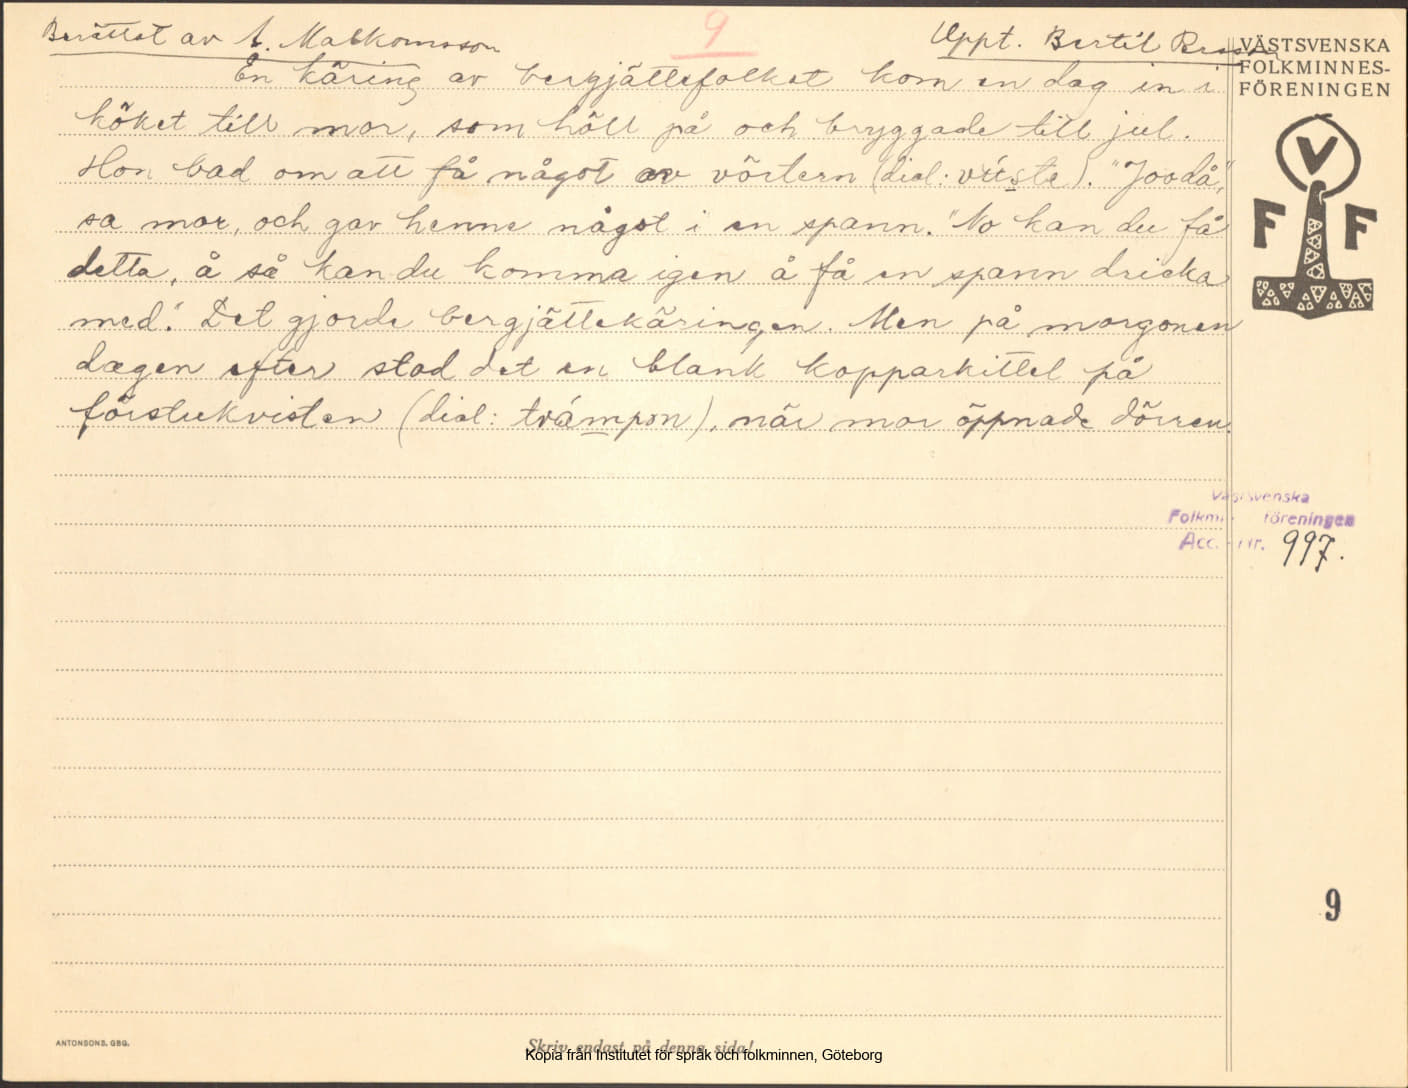 Berättat av A. Malkomsson
9
Uppt. Bertil
VÄSTSVENSKA
FOLKMINNES-
FÖRENINGEN
V
F F
En käring av bergjättefolket kom en dag in i
köket till mor, som höll på och bryggade till jul.
Hon bad om att få något av vörtern (dial: vŕiste). "Joodå,"
sa mor, och gav henne något i en spann. "No kan du få
detta, å så kan du komma igen å få en spann dricka
med." Det gjorde bergjättekäringen. Men på morgonen
dagen efter stod det en blank kopparkittel på
förstukvisten (dial: trámpon), när mor öppnade dörren.
Västsvenska
Folkm föreningen
Acc. Nr. 997.
9
ANTONSONS. GBG.
Skriv endast på denna sida!
Kopia från Institutet för språk och folkminnen, Göteborg